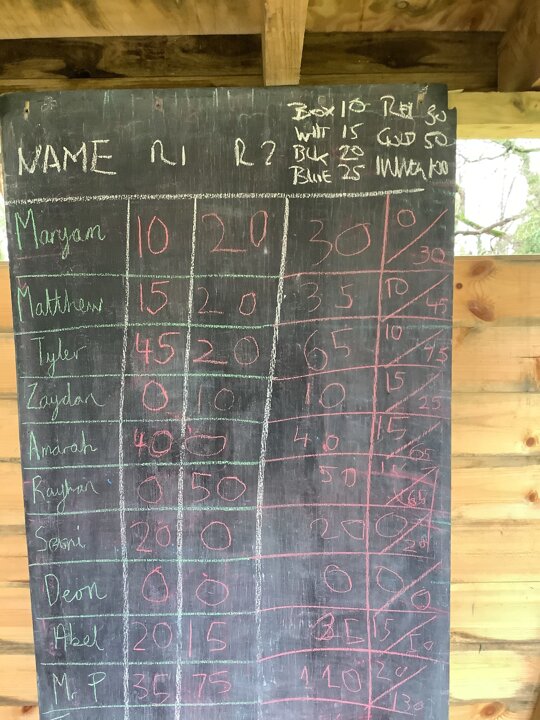 BOX 10 RED 30
WHT 15 GOLD 50
BLK 20 INNER 100
BLUE 25
NAME R1 R2
Maryam 10 20 30 0/30
Matthew 15 20 35 10/45
Tyler 45 20 65 10/75
Zaydan 0 10 10 15/25
Amarah 40 0 40 15/
Rayhan 0 50 50 15/65
20 0 20 0/20
Deon 0 0 0 0/0
Abel 20 15 35 15/50
Mr P 35 75 110 20/130